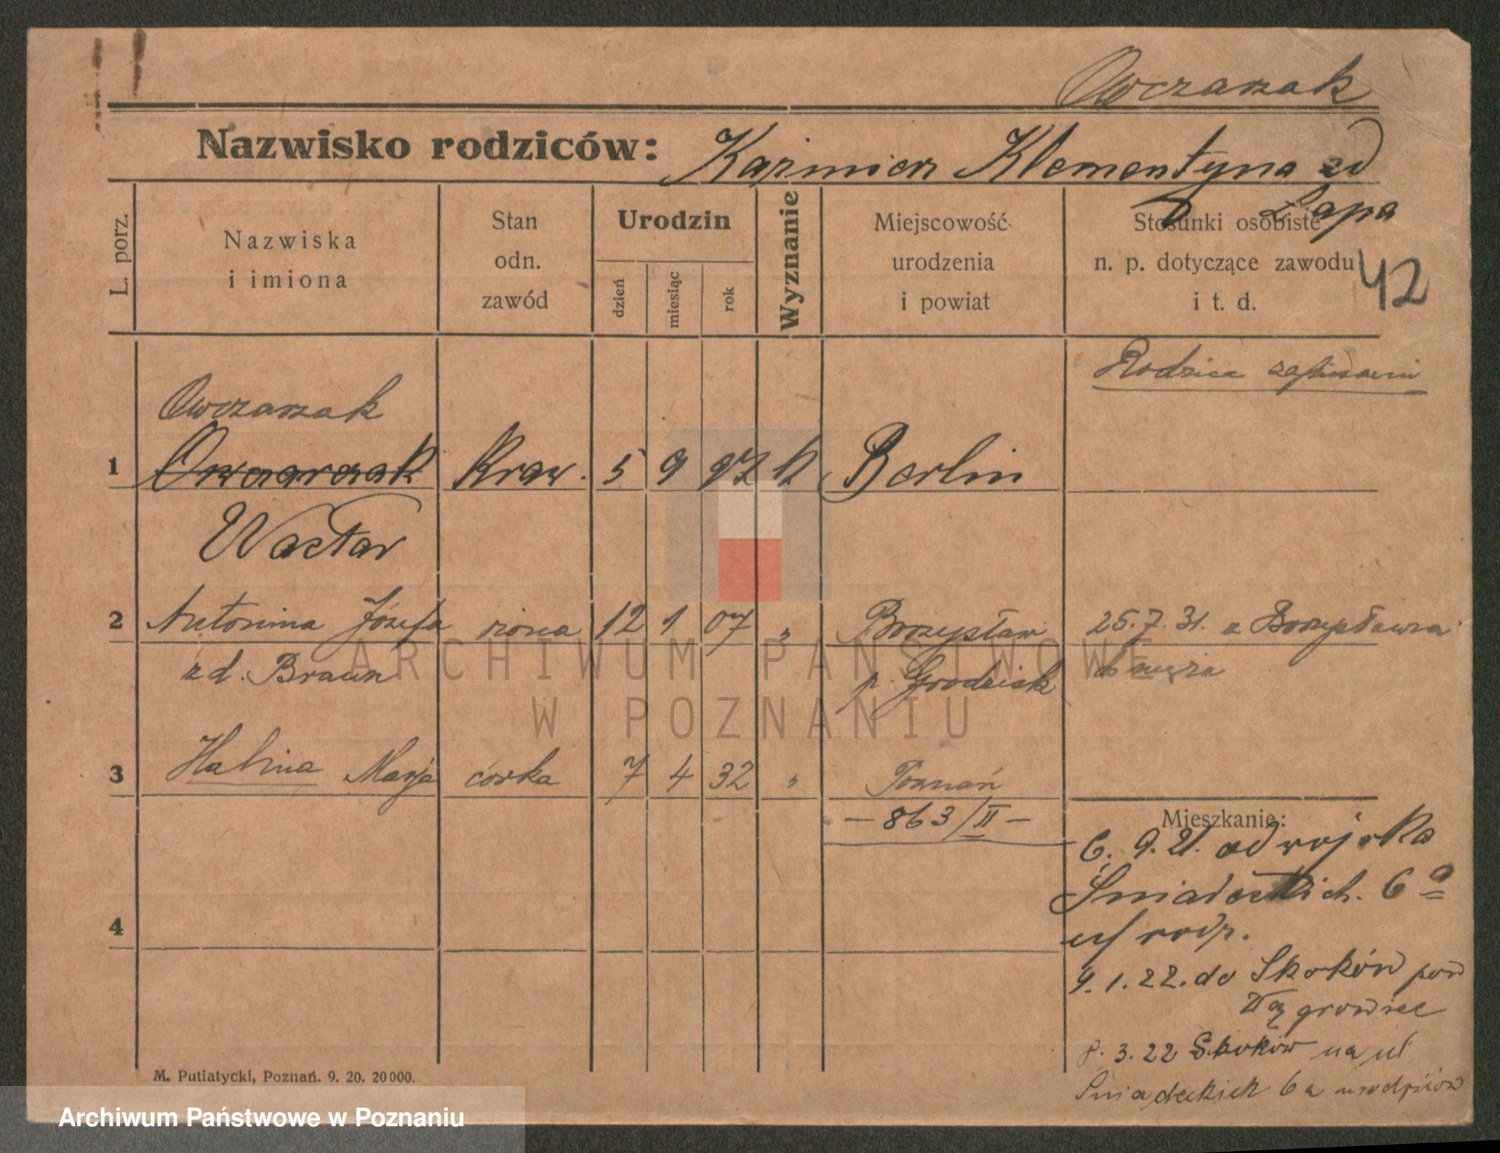 Owczarzak
Nazwisko rodziców: Kaźmierz Klementyna zd
Łapa
42
L. porz.
Nazwiska
i imiona
Stan
odn.
zawód
Urodzin
dzień
miesiąc
rok
Wyznanie
Miejscowość
urodzenia
i powiat
Stosunki osobiste
n. p. dotyczące zawodu
i t. d.
Rodzice zapisani
Owczarzak
1 Owczarzak Kraw. 5 9 97 k Berlin
Wacław
2 Antonina Józefa żona 12 1 07 " Borzysław 25.7.31. z Borzysławia
zd. Braun p. Grodzisk do męża
3 Halina Marja córka 7 4 32 " Poznań
— 863/II —
Mieszkanie:
6. 9. 21. od wojska
Śniadeckich. 6a
u/ rodz.
4
9. 1. 22. do Skoków pow
Wągrowiec
8. 3. 22 Skoków na ul
Śniadeckich 6a u rodziców
M. Putiatycki, Poznań. 9. 20. 20000.
ARCHIWUM PAŃSTWOWE
W POZNANIU
Archiwum Państwowe w Poznaniu